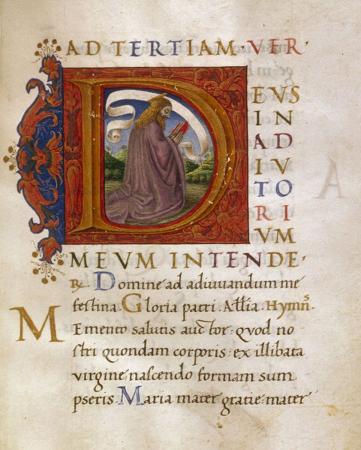 AD TERTIAM · VER
DEUS
IN AD
IU
TO
RI
UM
MEUM INTENDE
℟ Domine ad adiuuandum me
festina. Gloria patri. Allia. Hymnꝰ
Memento salutis auctor · quod no
stri quondam corporis · ex illibata
uirgine nascendo formam sum
pseris Maria mater gratie · mater